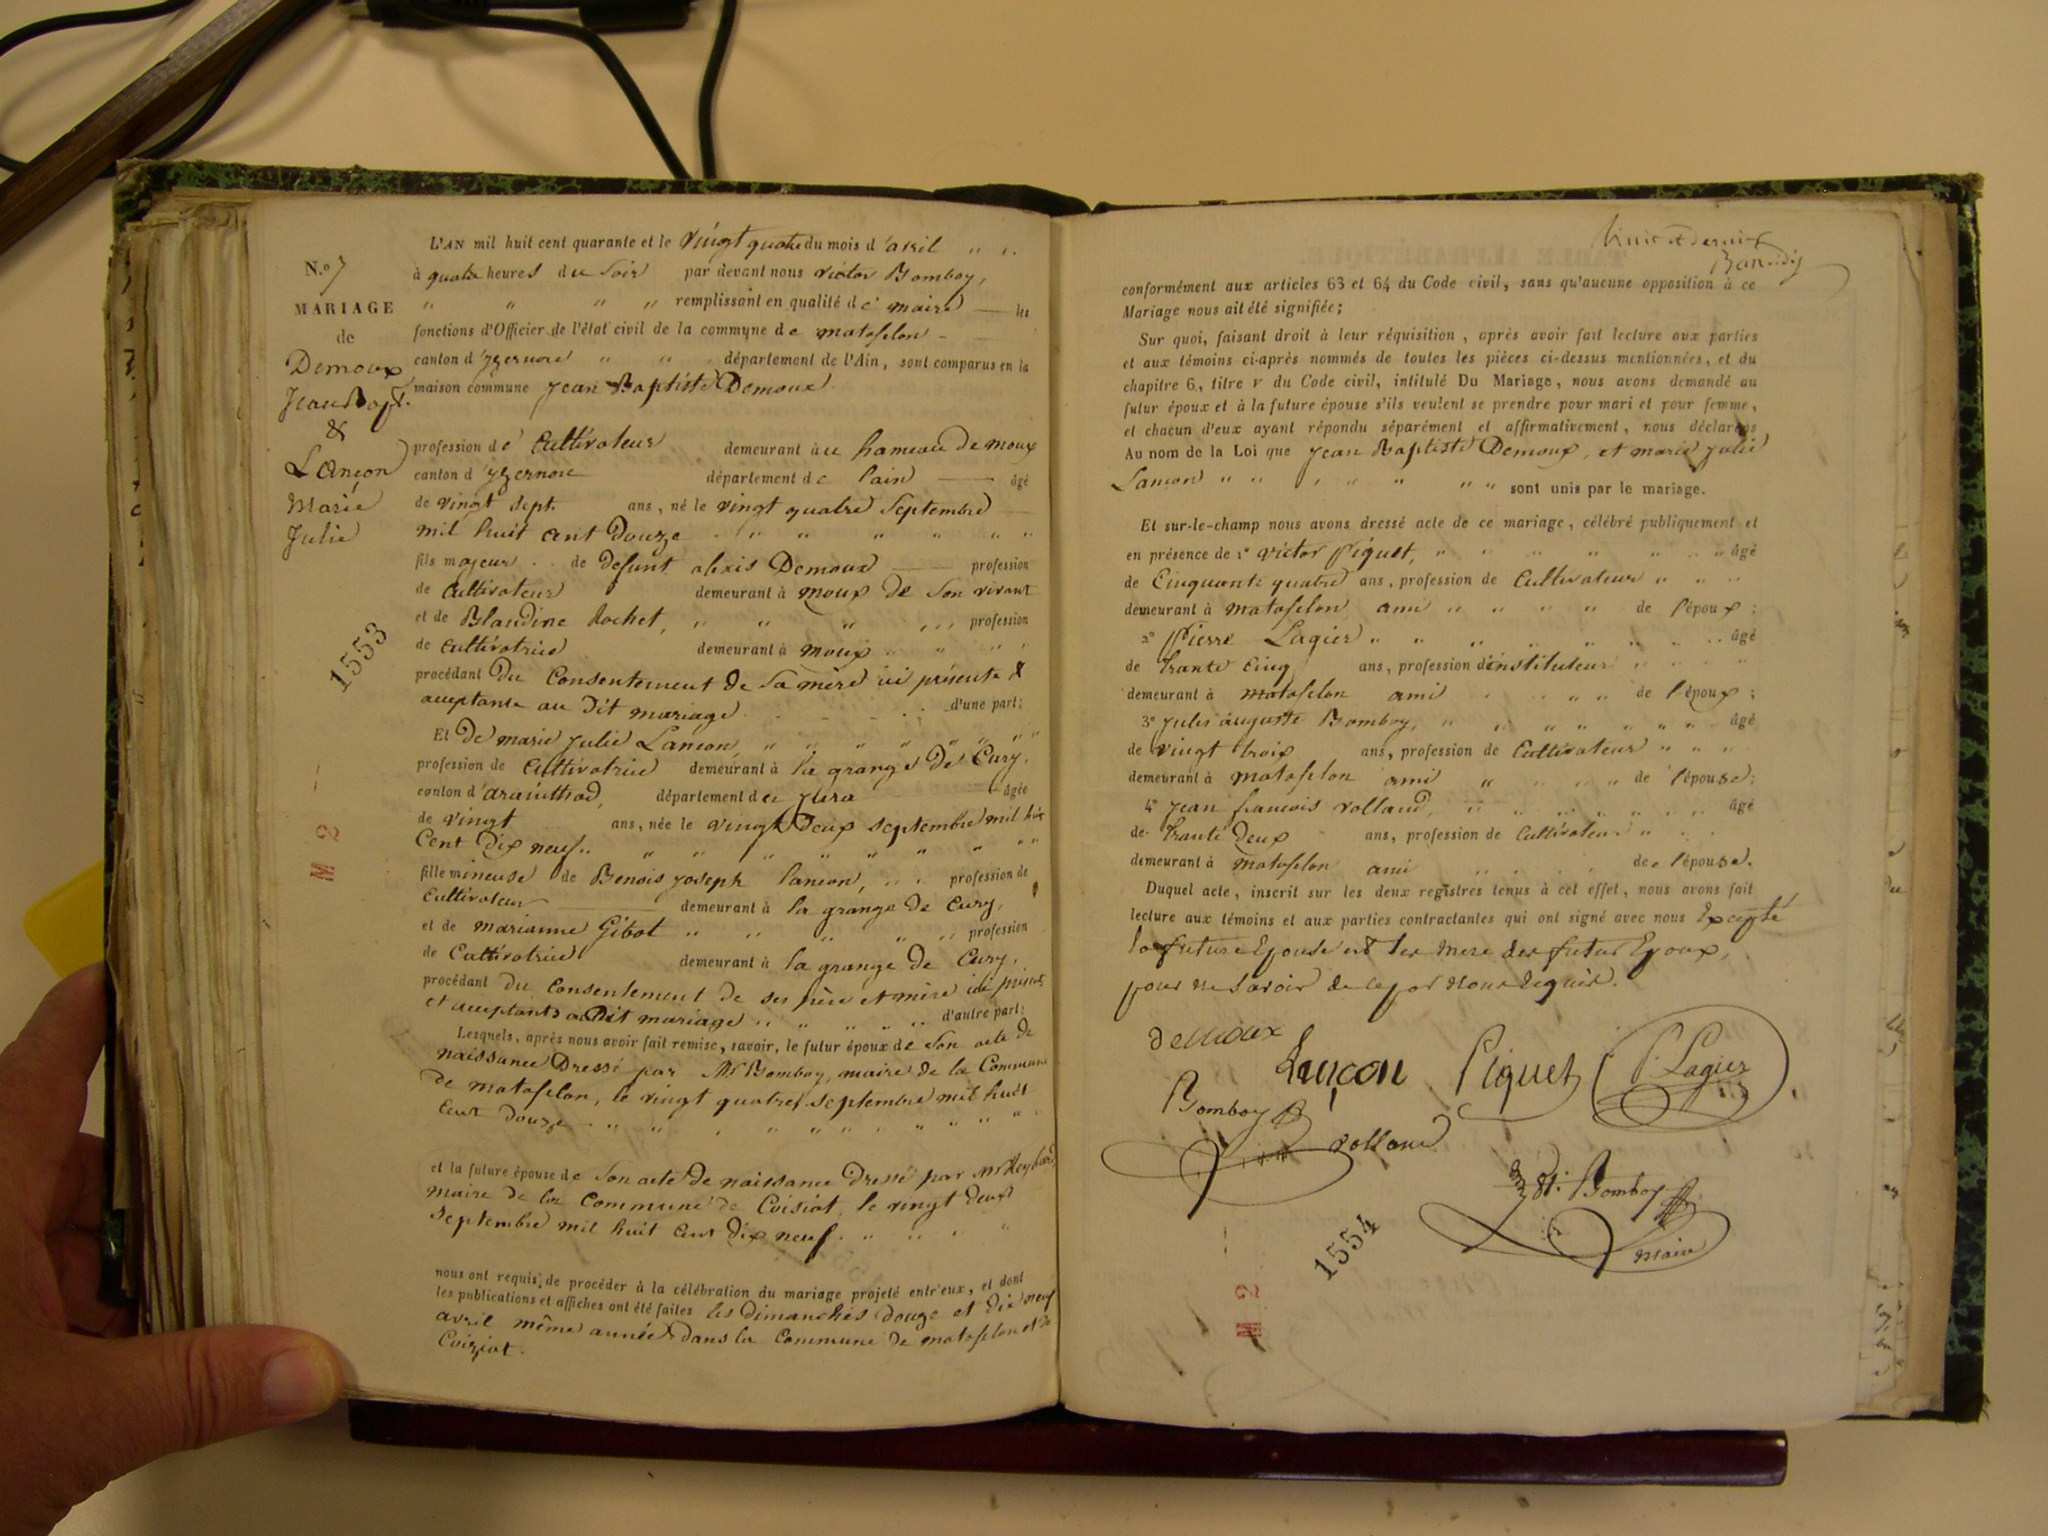 N.o 7
MARIAGE
de
Demoux
Jean Bapt.
&
Lançon
Marie
Julie
1553
M 2
L'AN mil huit cent quarante et le vingt quatre du mois d'avril " "
à quatre heures du soir par devant nous victor Bomboy,
" " " " remplissant en qualité de maire les
fonctions d'Officier de l'état civil de la commune de matafelon
canton d'yzernore " " département de l'Ain, sont comparus en la
maison commune Jean Baptiste Demoux
profession de Cultivateur demeurant au hameau de moux
canton d'yzernore département de l'ain âgé
de vingt sept ans, né le vingt quatre Septembre
mil huit cent Douze " " " " " "
fils majeur de defunt alexis Demoux profession
de Cultivateur demeurant à moux de son vivant
et de Blandine Rochet, " " " " profession
de cultivatrice demeurant à moux " " "
procédant du Consentement de sa mère ici présente &
acceptante au dit mariage d'une part;
Et De marie Julie Lancon, " " " " " "
profession de Cultivatrice demeurant à la grange de Cury,
canton d'arainthod, département du jura âgée
de vingt ans, née le vingt Deux septembre mil huit
Cent Dix neuf " " " " " " "
fille mineuse de Benois Joseph lancon, " " profession de
Cultivateur demeurant à la grange de Cury,
et de marianne Gibot " " " " " profession
de Cultivatrice demeurant à la grange de Cury,
procédant du consentement de ses père et mère ici présents
et acceptants au Dit mariage " " " " d'autre part;
Lesquels, après nous avoir fait remise, savoir, le futur époux de son acte de
naissance Dressé par Mr Bomboy, maire de la Commune
de matafelon, le vingt quatre septembre mil huit
cent douze " " " " " " " " " "
et la future épouse de son acte de naissance dressé par Mr
maire de la commune de Coisiat, le vingt deux
septembre mil huit cent dix neuf. " " " "
nous ont requis de procéder à la célébration du mariage projeté entr'eux, et dont
les publications et affiches ont été faites les dimanches douze et dix neuf
avril même année dans la Commune de matafelon et de
Coiziat.
conformément aux articles 63 et 64 du Code civil, sans qu'aucune opposition à ce
Mariage nous ait été signifiée;
Sur quoi, faisant droit à leur réquisition, après avoir fait lecture aux parties
et aux témoins ci-après nommés de toutes les pièces ci-dessus mentionnées, et du
chapitre 6, titre v du Code civil, intitulé Du Mariage, nous avons demandé au
futur époux et à la future épouse s'ils veulent se prendre pour mari et pour femme,
et chacun d'eux ayant répondu séparément et affirmativement, nous déclarons
Au nom de la Loi que Jean Baptiste Demoux, et marie julie
Lancon " " " " " " " sont unis par le mariage.
Et sur-le-champ nous avons dressé acte de ce mariage, célébré publiquement et
en présence de 1° victor Piquet, " " " " " " " âgé
de Cinquante quatre ans, profession de Cultivateur " " "
demeurant à matafelon ami " " " " de l'époux;
2° Pierre Lagier " " " " " " " " âgé
de trante cinq ans, profession d'instituteur " " " "
demeurant à matafelon ami " " " " de l'époux;
3° Jules auguste Bomboy, " " " " " " " âgé
de vingt trois ans, profession de Cultivateur " " "
demeurant à matafelon ami " " " " de l'épouse;
4° Jean francois rolland, " " " " " " âgé
de trante deux ans, profession de Cultivateur "
demeurant à matafelon ami " " " " de l'épouse.
Duquel acte, inscrit sur les deux registres tenus à cet effet, nous avons fait
lecture aux témoins et aux parties contractantes qui ont signé avec nous Excepté
la future Epouse et la mere du futur Epoux,
pour ne savoir de ce par nous requis.
demoux
Lançon Piquet P. Lagier
Bomboy
rolland
Bomboy
maire
1554
M 2